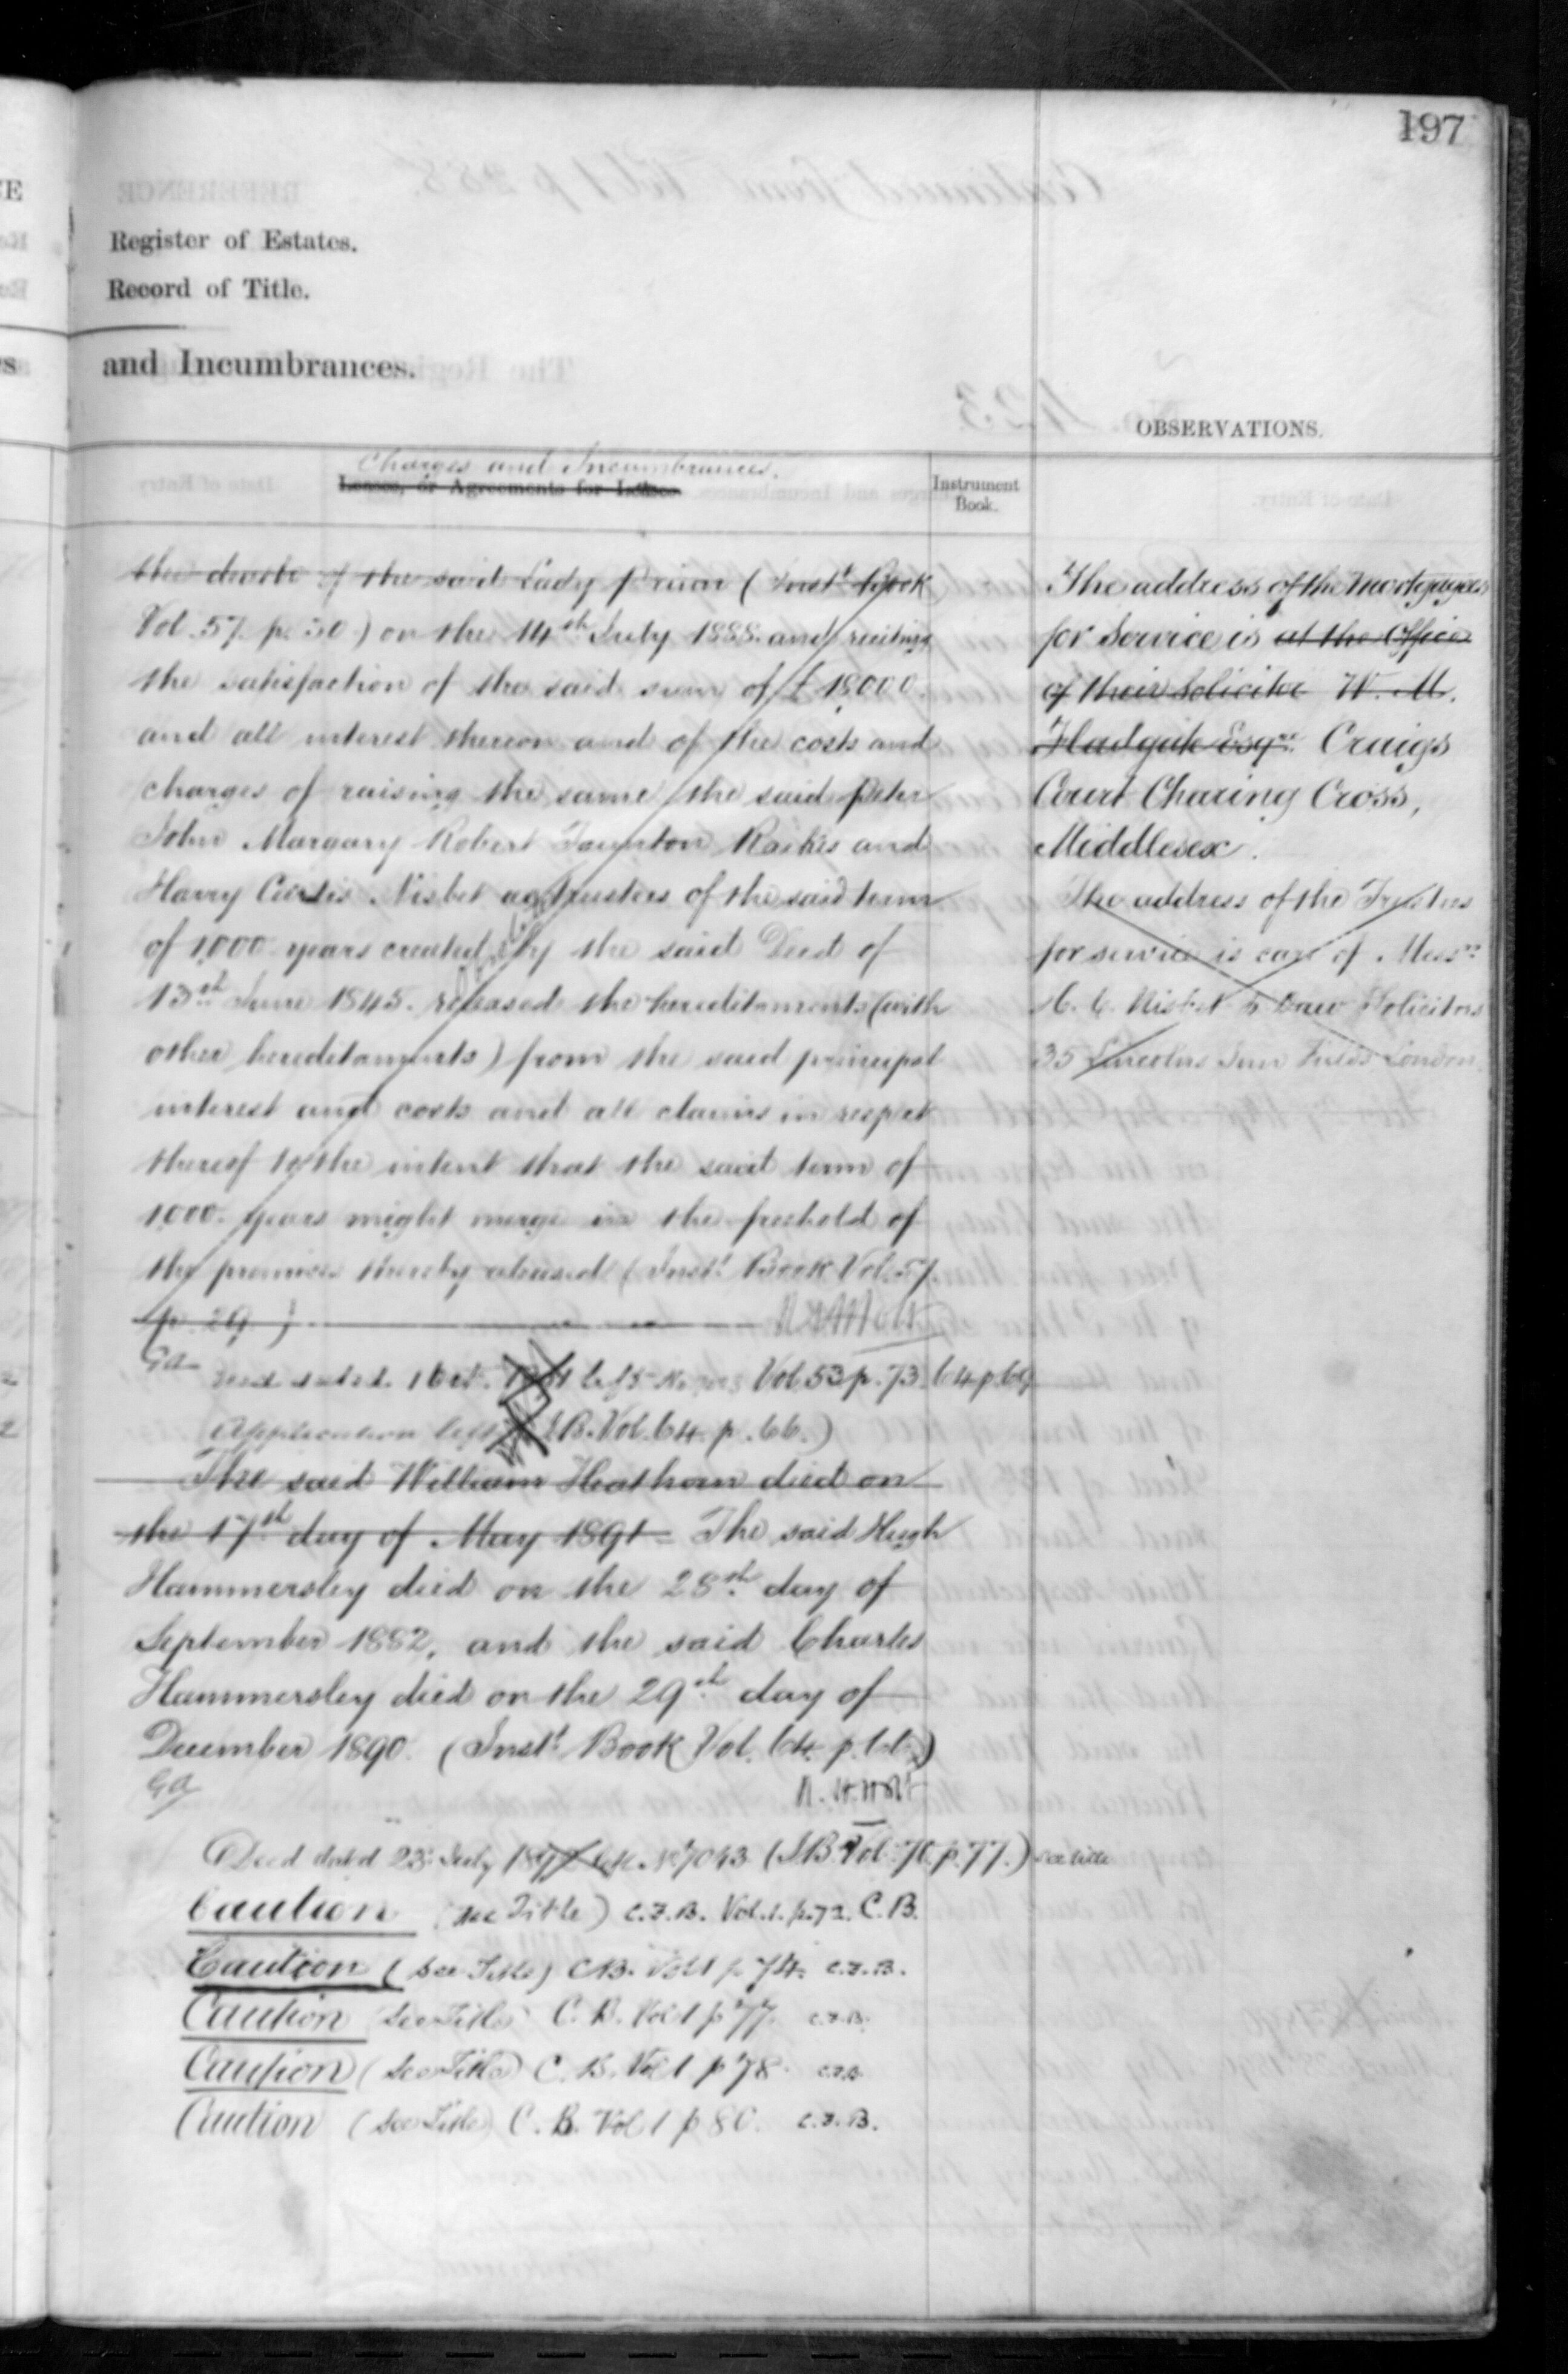 197
Register of Estates.
Record of Title.
and Incumbrances.
OBSERVATIONS.
Charges and Incumbrances.
Leases, or Agreements for Leases.
Instrument
Book.
the death of the said Lady Prior (Inst<sup>t</sup> Book
Vol. 57. p. 30) on the 14<sup>th</sup> July 1888 and reciting
the satisfaction of the said sum of £18,000
and all interest thereon and of the costs and
charges of raising the same the said Peter
John Margary Robert Taunton Raikes and
Harry Curtis Nisbet as trustees of the said term
of 1,000 years created by the said Deed of
13<sup>th</sup> June 1845 released the hereditaments (with
other hereditaments) from the said principal
interest and costs and all claims in respect
thereof to the intent that the said term of
1,000 years might merge in the freehold of
the premises thereby released (Inst<sup>t</sup> Book Vol. 57.
p. 29)
Deed dated 1 Oct. Vol 53 p. 73. 64 p. 69
Application left I.B. Vol. 64. p. 66.)
The said William Heathorn died on
the 17<sup>th</sup> day of May 1891 The said Hugh
Hammersley died on the 28<sup>th</sup> day of
September 1882, and the said Charles
Hammersley died on the 29<sup>th</sup> day of
December 1890. (Inst<sup>t</sup> Book Vol. 64. p. 66.)
Deed dated 23<sup>d</sup> July 7043 (I.B. Vol. 70. p. 77.) see title
Caution (see Title) C.B. Vol. 1. p. 72. C.B.
Caution (see Title) C.B. Vol 1 p 74.
Caution (see Title) C.B. Vol 1 p 77.
Caution (see Title) C.B. Vol 1 p 78.
Caution (see Title) C.B. Vol 1 p 80.
The address of the Mortgagees
for Service is at the Office
of their Solicitor W. M.
Hadgate Esq<sup>re</sup> Craigs
Court Charing Cross,
Middlesex.
The address of the Trustees
for service is care of Mess<sup>rs</sup>
H. C. Nisbet & Daw Solicitors
35 Lincolns Inn Fields London